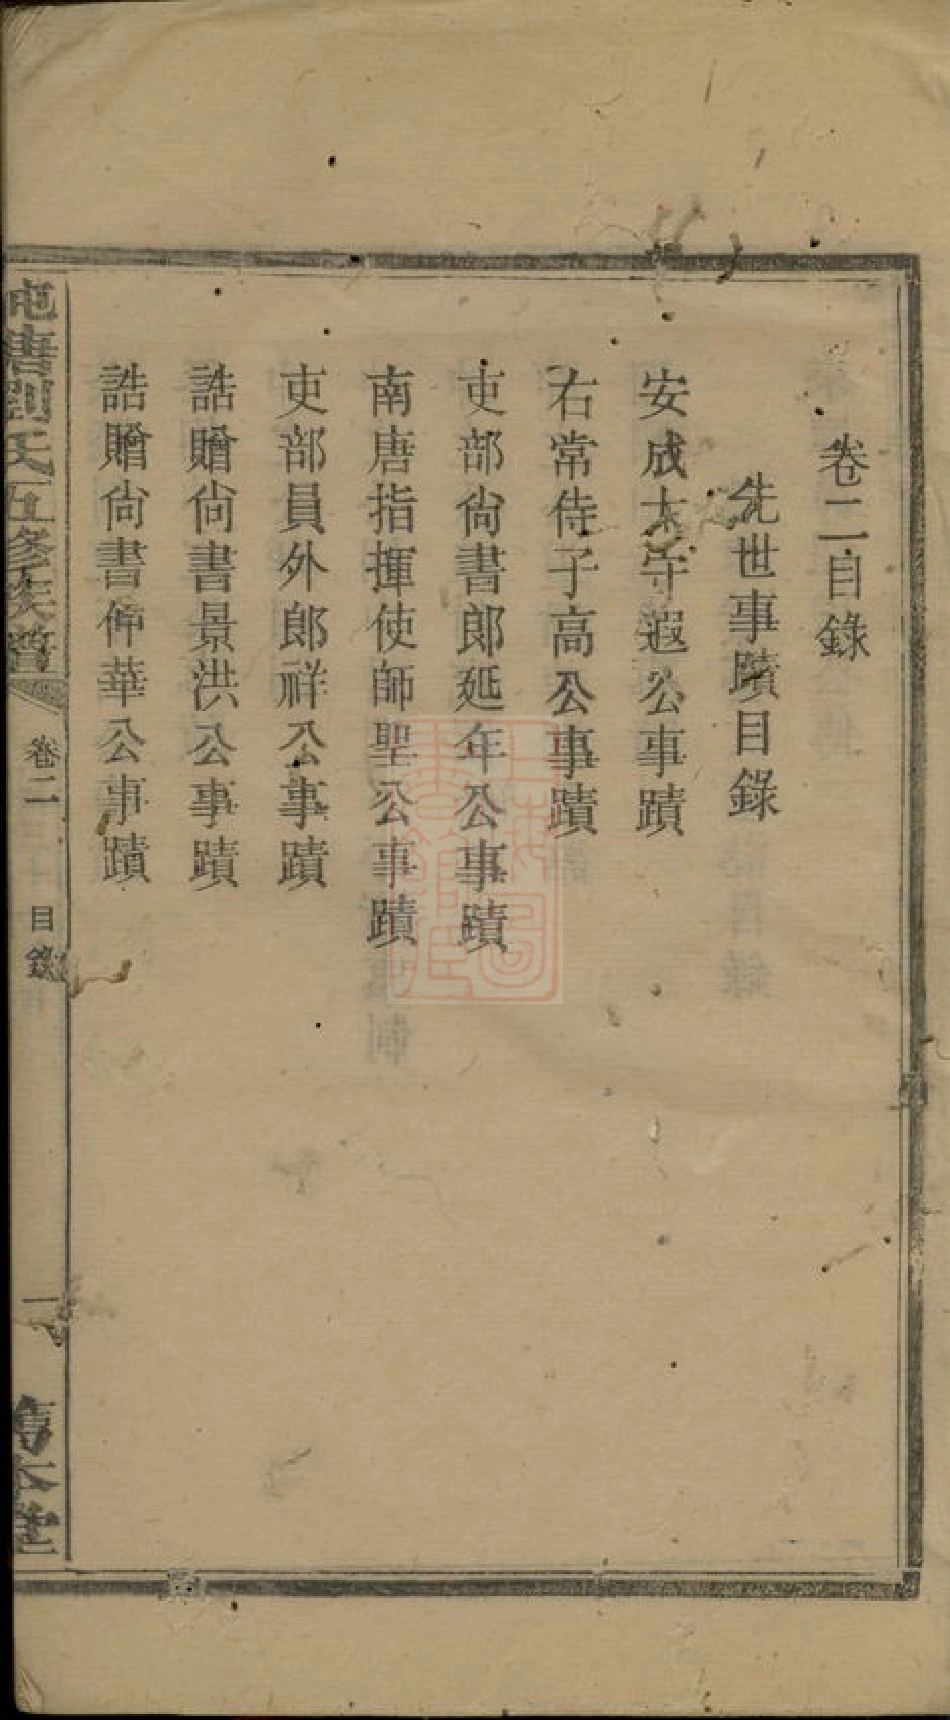 卷二目錄
先世事蹟目錄
安成太守遐公事蹟
右常侍子高公事蹟
吏部尙書郎延年公事蹟
南唐指揮使師聖公事蹟
吏部員外郎祥公事蹟
誥贈尙書景洪公事蹟
誥贈尙書仲華公事蹟
唐劉氏五修族譜
卷二
目錄
一
堂